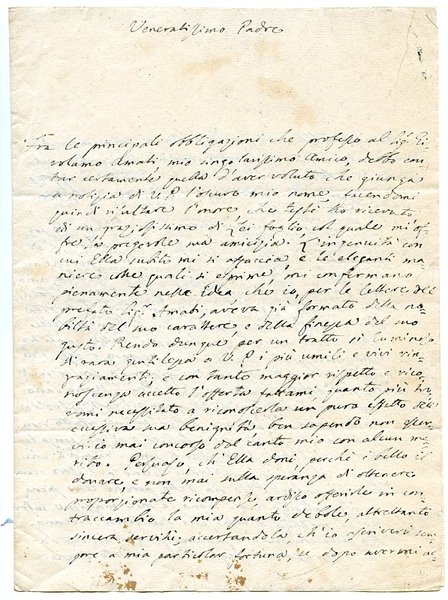 Veneratissimo Padre
Fra le principali obbligazioni che professo al Sig. Gi-
rolamo Amati mio singolarissimo Amico, debbo con-
tar certamente quella d'aver voluto che giunga
a notizia di V. P. l'oscuro mio nome, facendomi
quindi risaltare l'onore, che testè ho ricevuto,
di un pregiatissimo di Lei foglio, col quale mi of-
fre la pregevole sua amicizia. L'ingenuità con
cui Ella subito mi si affaccia e le eleganti ma-
niere colle quali si esprime, mi confermano
pienamente nella Idea che io, per le lettere del
pregiato Sig. Amati, aveva già formato della no-
biltà del suo carattere, e della finezza del suo
gusto. Rendo dunque per un tratto sì luminoso
di rara gentilezza a V. P. i più umili e vivi rin-
graziamenti; e con tanto maggior rispetto e rico-
noscenza accetto l'offerta fattami, quanto più tro-
vomi necessitato a riconoscerla un puro effetto dell'
eccessiva sua benignità ben sapendo non esser-
vi io mai concorso dal canto mio con alcun me-
rito. Persuaso, ch'Ella doni, perchè è bello il
donare, e non mai sulla speranza di ottenere
proporzionate ricompense, ardisco offerirle in con-
traccambio la mia quanto debole altrettanto
sincera servitù: accertandola, ch'io ascriverò sem-
pre a mia particolar fortuna, se dopo avermi ac-